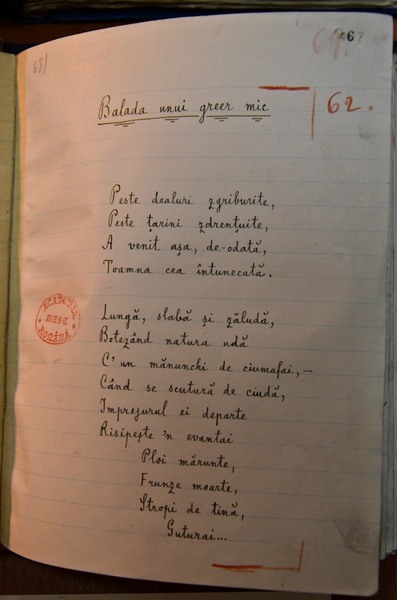 68)
69.
467
62.
Balada unui greer mic
Peste dealuri zgriburite,
Peste țarini zdrențuite,
A venit așa, de-odată,
Toamna cea întunecată.
Lungă, slabă și zăludă,
Botezând natura udă
C'un mănunchi de ciumafai, –
Când se scutură de ciudă,
Imprejurul ei departe
Risipește 'n evantai
Ploi mărunte,
Frunze moarte,
Stropi de tină,
Guturai...
ACADEMIA
MSSE
ROMÂNĂ